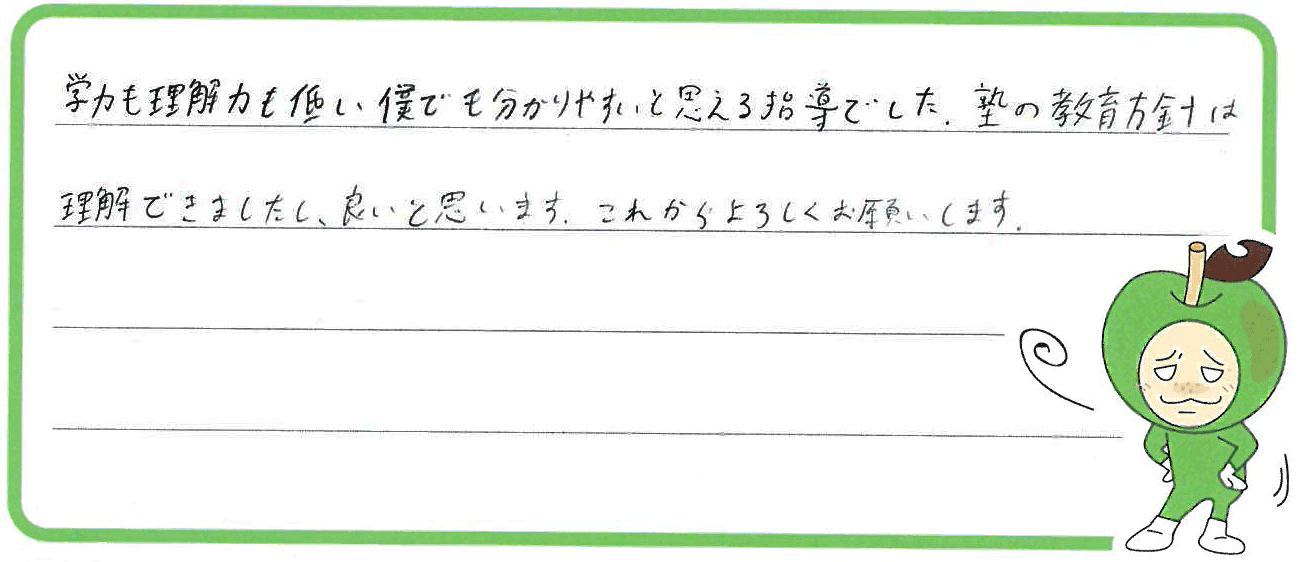 学力も理解力も低い僕でも分かりやすいと思える指導でした.塾の教育方針は
理解できましたし、良いと思います.これからよろしくお願いします.